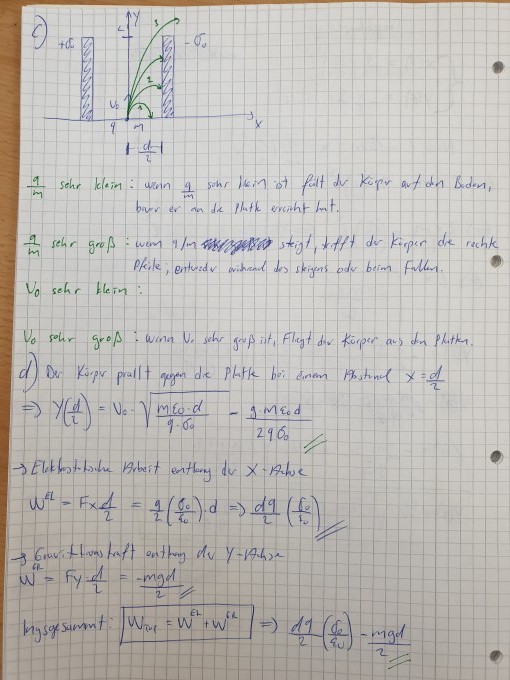 c)
y
L
+σ₀
-σ₀
3
2
1
V₀
q m
x
d/2
q/m sehr klein: wenn q/m sehr klein ist fällt der Körper auf den Boden,
bevor er an die Platte erreicht hat.
q/m sehr groß: wenn q/m steigt, trifft der Körper die rechte
Pfeile, entweder während des steigens oder beim Fallen.
V₀ sehr klein:
V₀ sehr groß: wenn V₀ sehr groß ist, Fliegt der Körper aus den Platten.
d) Der Körper prallt gegen die Platte bei einem Abstand x = d/2
⇒ Y(d/2) = V₀ · √(mε₀·d / q·σ₀) - g·mε₀d / 2qσ₀
→ Elektrostatische Arbeit entlang der X-Achse
W^EL = Fx·d/2 = q/2 (σ₀/ε₀)·d ⇒ dq/2 (σ₀/ε₀)
→ Gravitionskraft entlang der Y-Achse
W^GR = Fy·d/2 = -mgd/2
Insgesammt: W = W^EL + W^GR ⇒ dq/2 (σ₀/ε₀) - mgd/2